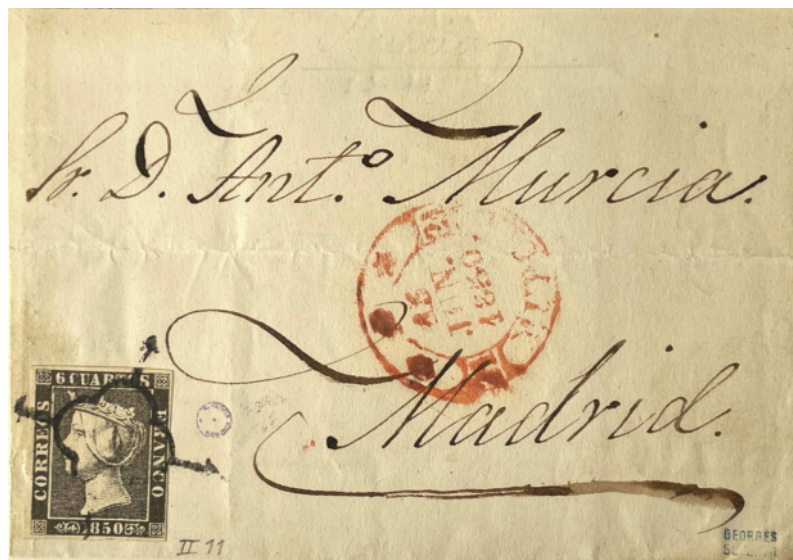 Sr. D. Ant.º Murcia.
15
JUN.
1850.
Madrid.
6 CUARTOS
CORREOS
FRANCO
1850
II 11
GEORGES